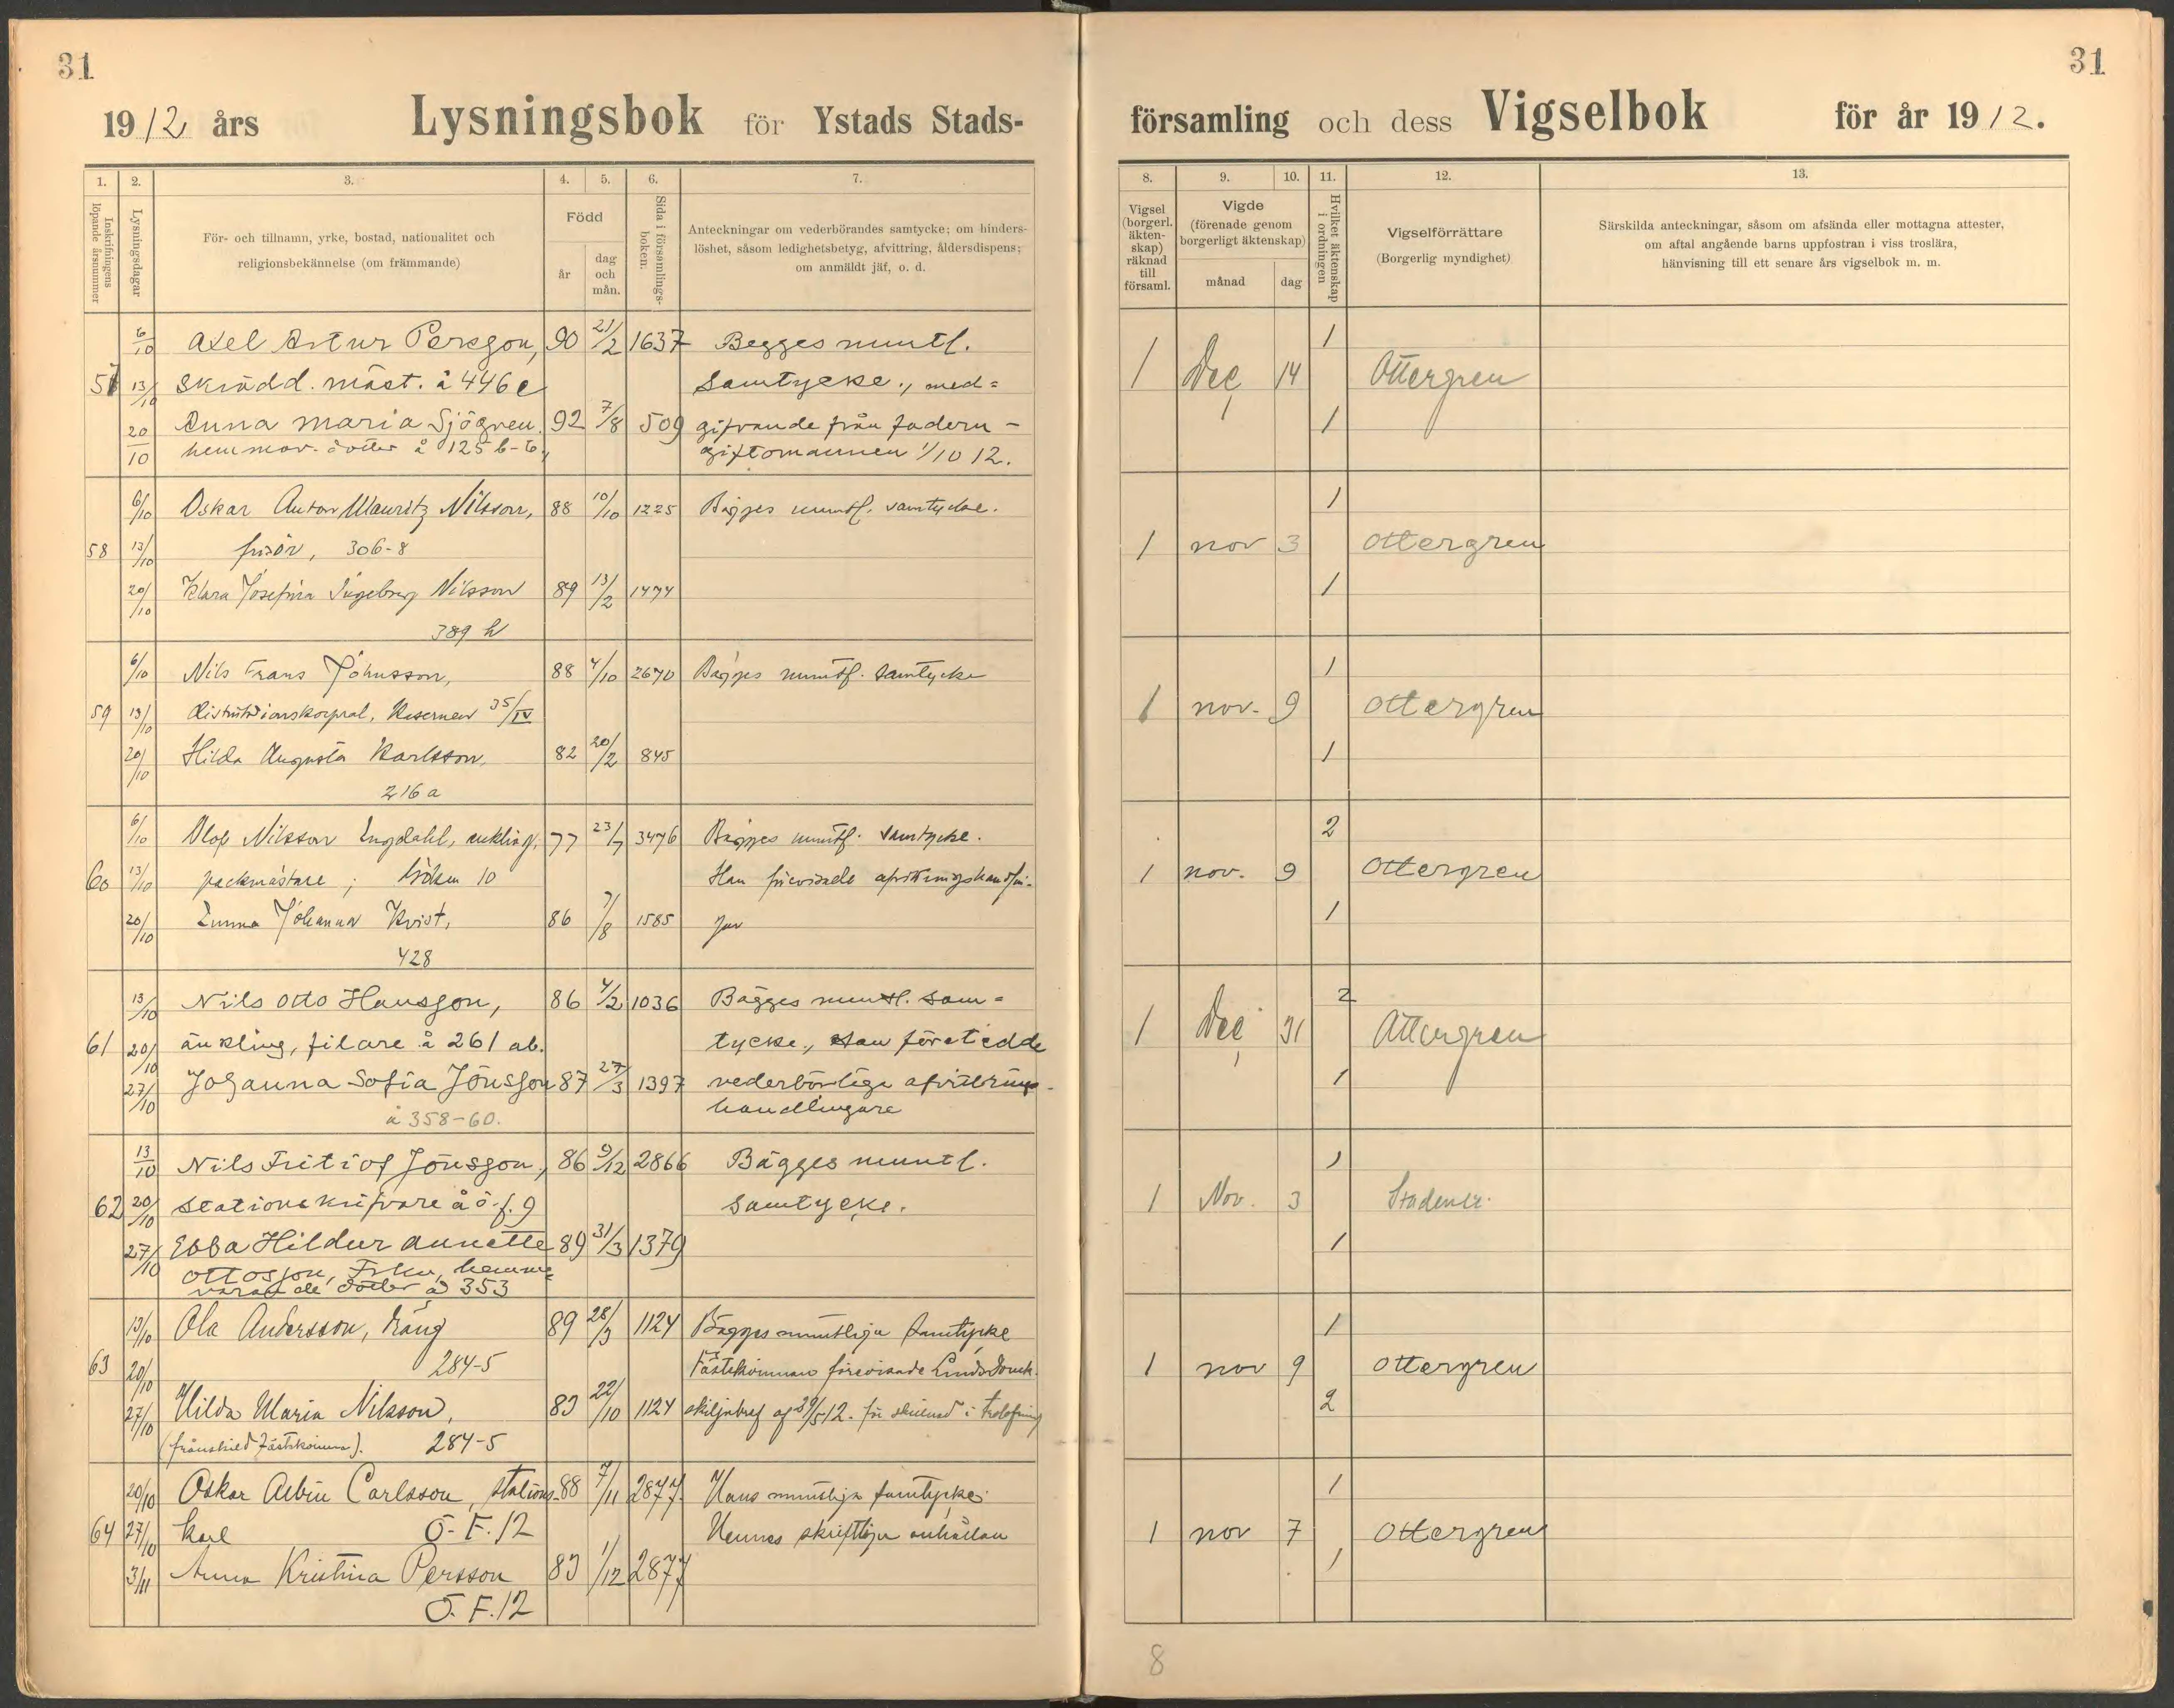 31
1912 års Lysningsbok för Ystads Stads-
1.
2.
3.
4.
5.
6.
7.
Inskrifningens löpande årsnummer
Lysningsdagar
För- och tillnamn, yrke, bostad, nationalitet och
religionsbekännelse (om främmande)
Född
år
dag
och
mån.
Sida i församlings-
boken.
Anteckningar om vederbörandes samtycke; om hinders-
löshet, såsom ledighetsbetyg, afvittring, åldersdispens;
om anmäldt jäf, o. d.
6/10 Axel Artur Persson, 90 21/2 1637 Begges muntl.
57 13/10 skrädd. mäst. å 446 e samtycke., med=
20/10 Anna Maria Sjögren. 92 7/8 509 gifvande från fadern -
hemmav. dotter å 125 b-6, giftomannen 1/10 12.
6/10 Oskar Anton Mauritz Nilsson, 88 10/10 1225 Bägges muntl. samtycke.
58 13/10 frisör, 306-8
20/10 Klara Josefina Ingeborg Nilsson 89 13/2 1474
389 h
6/10 Nils Frans Johnsson, 88 4/10 2670 Bägges muntl. samtycke
59 13/10 distinktionskorpral, Kasernen 35/IV
20/10 Hilda Augusta Karlsson, 82 20/2 845
216 a
6/10 Olof Nilsson Engdahl, enkling, 77 23/7 3476 Bägges muntl. samtycke.
60 13/10 packmästare; 10 Han förevisade afvittringshandlin-
20/10 Emma Johanna Kvist, 86 7/8 1585 gar
428
13/10 Nils Otto Hansson, 86 4/2 1036 Bägges muntl. sam=
61 20/10 änkling, filare å 261 ab. tycke., Han företedde
27/10 Johanna Sofia Jönsson 87 27/3 1397 vederbörliga afvittrings-
å 358-60. handlingare
13/10 Nils Fritiof Jönsson, 86 9/12 2866 Bägges muntl.
62 20/10 stationskrifvare å ö. f. 9 samtycke.
27/10 Ebba Hildur Annette 89 31/3 1379
Ottosson, Frkn, hemma=
varande dotter å 353
13/10 Ola Andersson, dräng 89 28/3 1124 Bägges muntliga samtycke
63 20/10 284-5 Fästekvinnan förevisade Lunds Domk.
27/10 Hilda Maria Nilsson, 83 22/10 1124 skiljebref af 29/5 12. för skillnad i trolofning
(frånskild fästekvinna). 284-5
20/10 Oskar Albin Carlsson, stations- 88 7/11 2877. Hans muntliga samtycke
64 27/10 karl Ö-F. 12 Hennes skriftliga anhållan
3/11 Anna Kristina Persson 83 1/12 2877
Ö. F. 12
31
församling och dess Vigselbok för år 1912.
8.
9.
10.
11.
12.
13.
Vigsel
(borgerl.
äkten-
skap)
räknad
till
församl.
Vigde
(förenade genom
borgerligt äktenskap)
månad
dag
Hvilket äktenskap
i ordningen
Vigselförrättare
(Borgerlig myndighet)
Särskilda anteckningar, såsom om afsända eller mottagna attester,
om aftal angående barns uppfostran i viss troslära,
hänvisning till ett senare års vigselbok m. m.
1
1 Dec 14 Ottergren
1
1
1 nov 3 Ottergren
1
1
1 nov. 9 Ottergren
1
2
1 nov. 9 Ottergren
1
2
1 Dec 31 Ottergren
1
1
1 Nov. 3 Stadener.
1
1
1 nov 9 Ottergren
2
1
1 nov 7 Ottergren
1
8